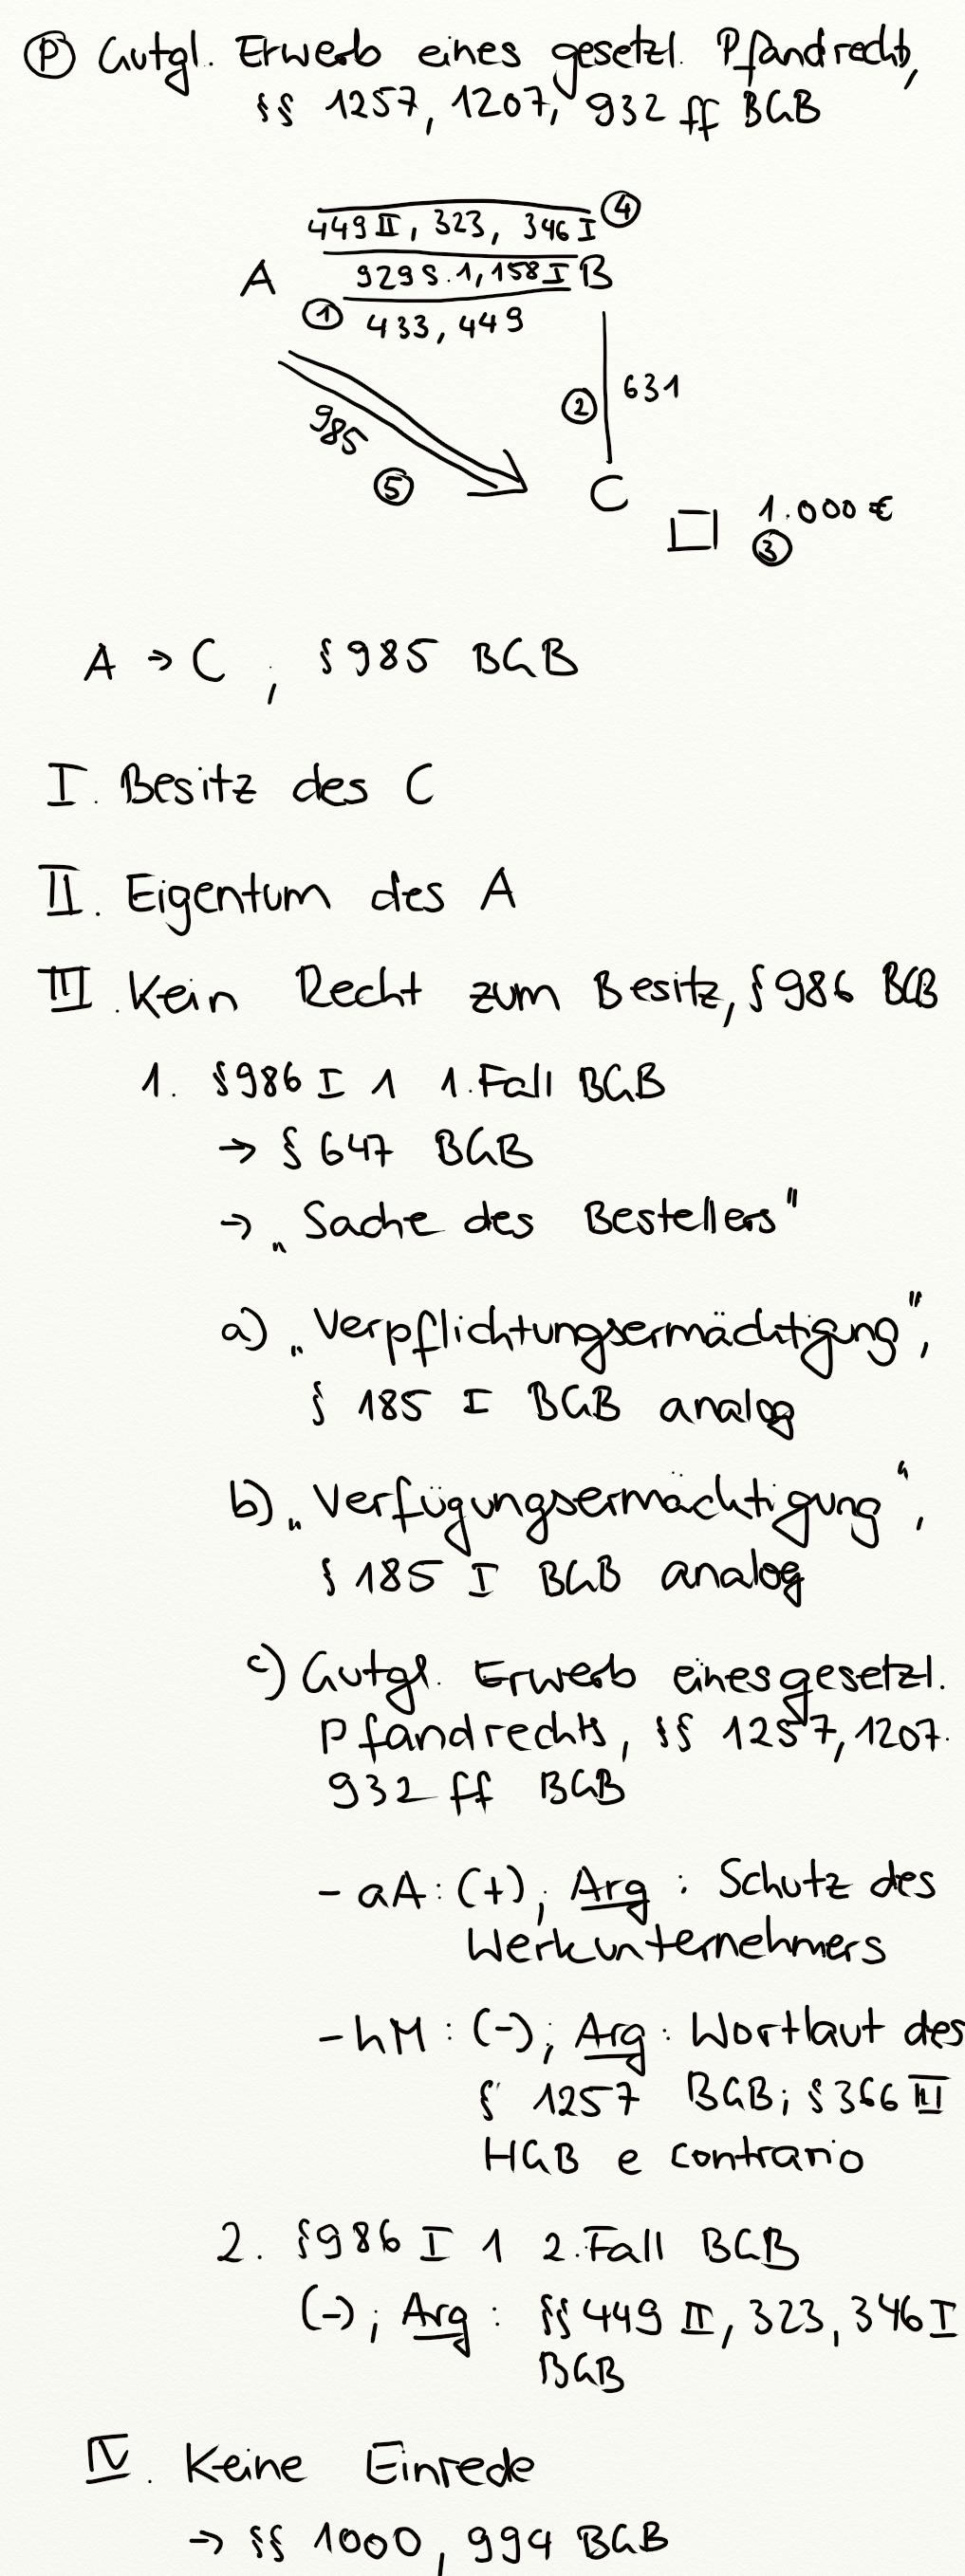 Ⓟ Gutgl. Erwerb eines gesetzl. Pfandrechts,
§§ 1257, 1207, 932 ff BGB
449 II, 323, 346 I ④
A 929 S. 1, 158 I B
① 433, 449
② 631
985
⑤
C
1.000 €
③
A → C , § 985 BGB
I. Besitz des C
II. Eigentum des A
III. Kein Recht zum Besitz, § 986 BGB
1. § 986 I 1 1. Fall BGB
→ § 647 BGB
→ „Sache des Bestellers"
a) „Verpflichtungsermächtigung",
§ 185 I BGB analog
b) „Verfügungsermächtigung",
§ 185 I BGB analog
c) Gutgl. Erwerb eines gesetzl.
Pfandrechts, §§ 1257, 1207.
932 ff BGB
- aA: (+); Arg: Schutz des
Werkunternehmers
- hM: (-); Arg: Wortlaut des
§ 1257 BGB; § 366 III
HGB e contrario
2. § 986 I 1 2. Fall BGB
(-); Arg: §§ 449 II, 323, 346 I
BGB
IV. Keine Einrede
→ §§ 1000, 994 BGB